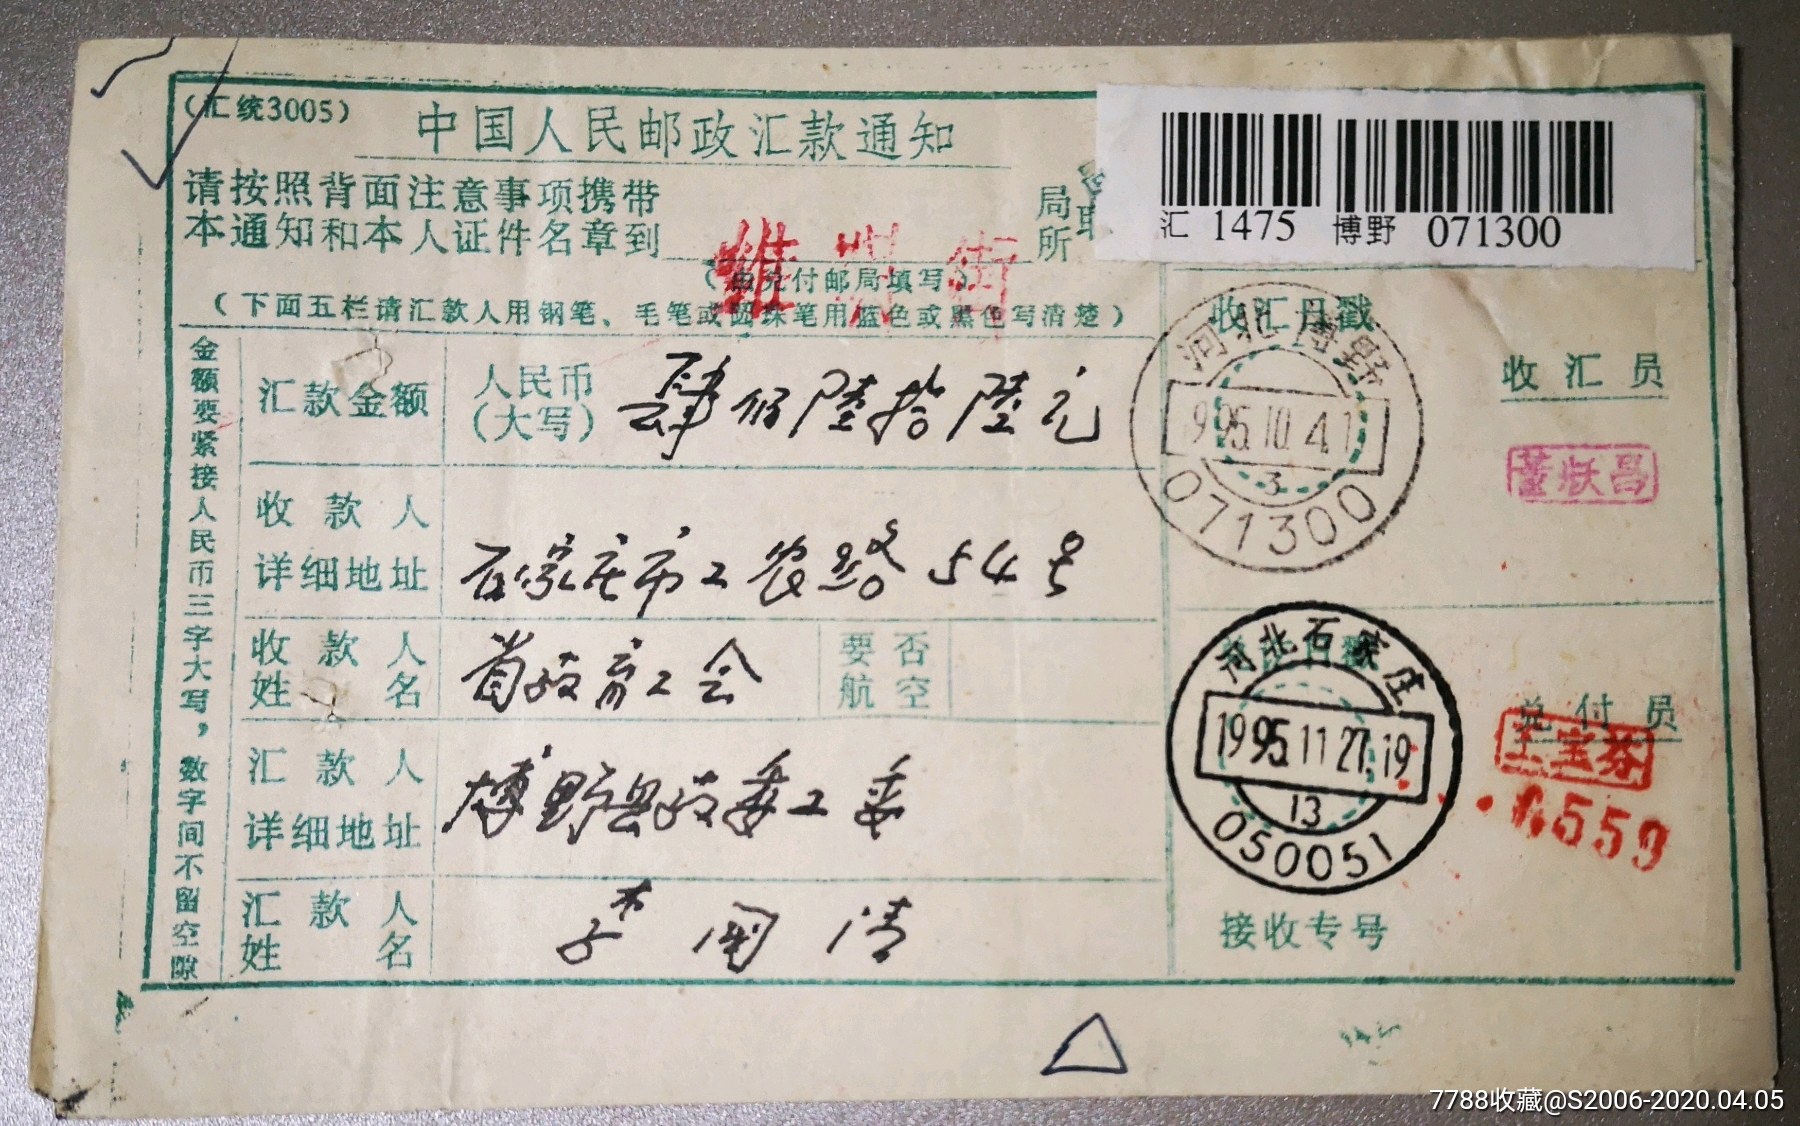 (汇统3005)
中国人民邮政汇款通知
请按照背面注意事项携带
本通知和本人证件名章到
局
所
维 街
(由兑付邮局填写)
(下面五栏请汇款人用钢笔、毛笔或圆珠笔用蓝色或黑色写清楚)
汇 1475 博野 071300
金额要紧接人民币三字大写，数字间不留空隙
汇款金额
人民币
(大写)
肆佰陆拾陆元
收款人
详细地址
石家庄市工农路54号
收款人
姓名
省教育工会
要否
航空
汇款人
详细地址
博野县教委工委
汇款人
姓名
李国清
收汇日戳
河北博野
1995.10.4.1
3
071300
收汇员
河北石家庄
1995.11.27.19
13
050051
兑付员
王宝芬
接收专号
7788收藏@S2006-2020.04.05